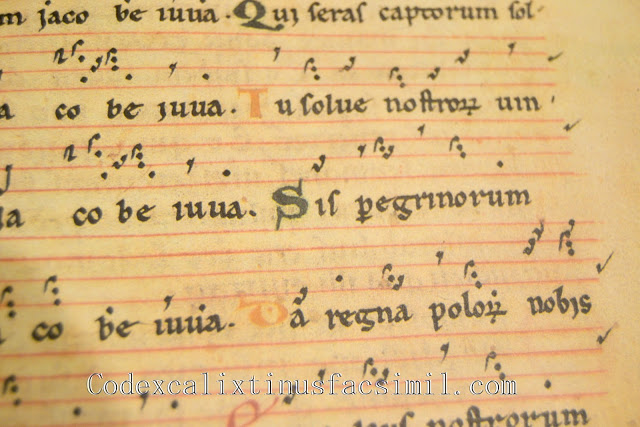 m jaco be iuua. Qui seras captorum sol-
a co be iuua. Tu solue nostroꝝ uin-
la co be iuua. Sis ꝑegrinorum
co be iuua. Da regna poloꝝ nobis
Codexcalixtinusfacsimil.com
nostrorum